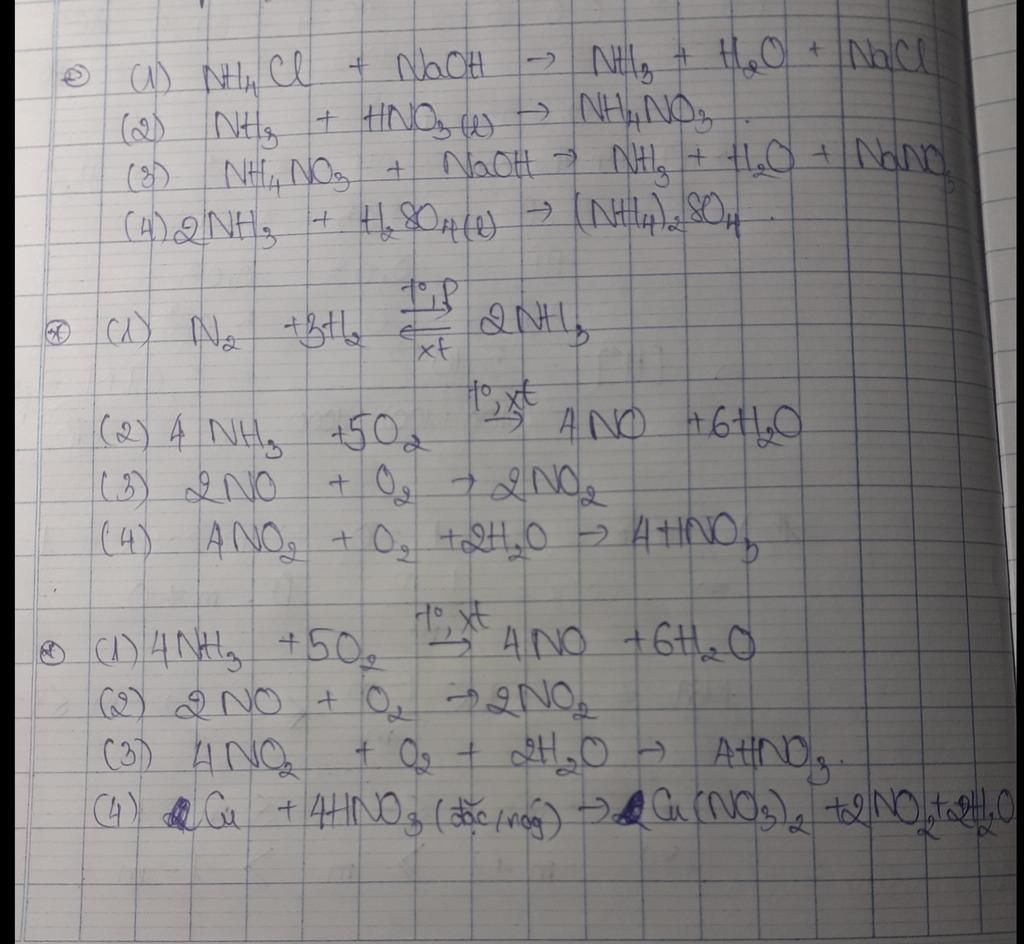 ⊛ (1) NH₄Cl + NaOH → NH₃ + H₂O + NaCl
(2) NH₃ + HNO₃(l) → NH₄NO₃.
(3) NH₄NO₃ + NaOH → NH₃ + H₂O + NaNO₃
(4) 2NH₃ + H₂SO₄(l) → (NH₄)₂SO₄.
⊛ (1) N₂ + 3H₂ ⇌ (t°, p / xt) 2NH₃
(2) 4NH₃ + 5O₂ →(t°, xt) 4NO + 6H₂O
(3) 2NO + O₂ → 2NO₂
(4) 4NO₂ + O₂ + 2H₂O → 4HNO₃
⊛ (1) 4NH₃ + 5O₂ →(t°, xt) 4NO + 6H₂O
(2) 2NO + O₂ → 2NO₂
(3) 4NO₂ + O₂ + 2H₂O → 4HNO₃.
(4) Cu + 4HNO₃ (đặc/nóg) → Cu(NO₃)₂ + 2NO₂ + 2H₂O